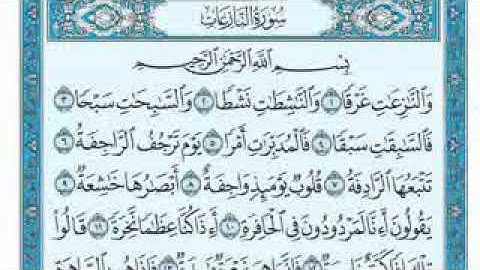 سُورَةُ النَّازِعَاتِ
بِسْمِ اللَّهِ الرَّحْمَٰنِ الرَّحِيمِ
وَالنَّازِعَاتِ غَرْقًا ١ وَالنَّاشِطَاتِ نَشْطًا ٢ وَالسَّابِحَاتِ سَبْحًا ٣
فَالسَّابِقَاتِ سَبْقًا ٤ فَالْمُدَبِّرَاتِ أَمْرًا ٥ يَوْمَ تَرْجُفُ الرَّاجِفَةُ ٦
تَتْبَعُهَا الرَّادِفَةُ ٧ قُلُوبٌ يَوْمَئِذٍ وَاجِفَةٌ ٨ أَبْصَارُهَا خَاشِعَةٌ ٩
يَقُولُونَ أَءِنَّا لَمَرْدُودُونَ فِي الْحَافِرَةِ ١٠ أَءِذَا كُنَّا عِظَامًا نَخِرَةً ١١ قَالُوا